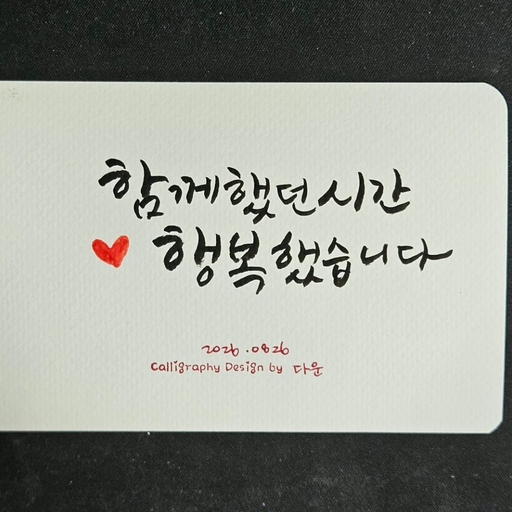 함께했던시간
행복했습니다
2026.0826
Calligraphy Design by 다운